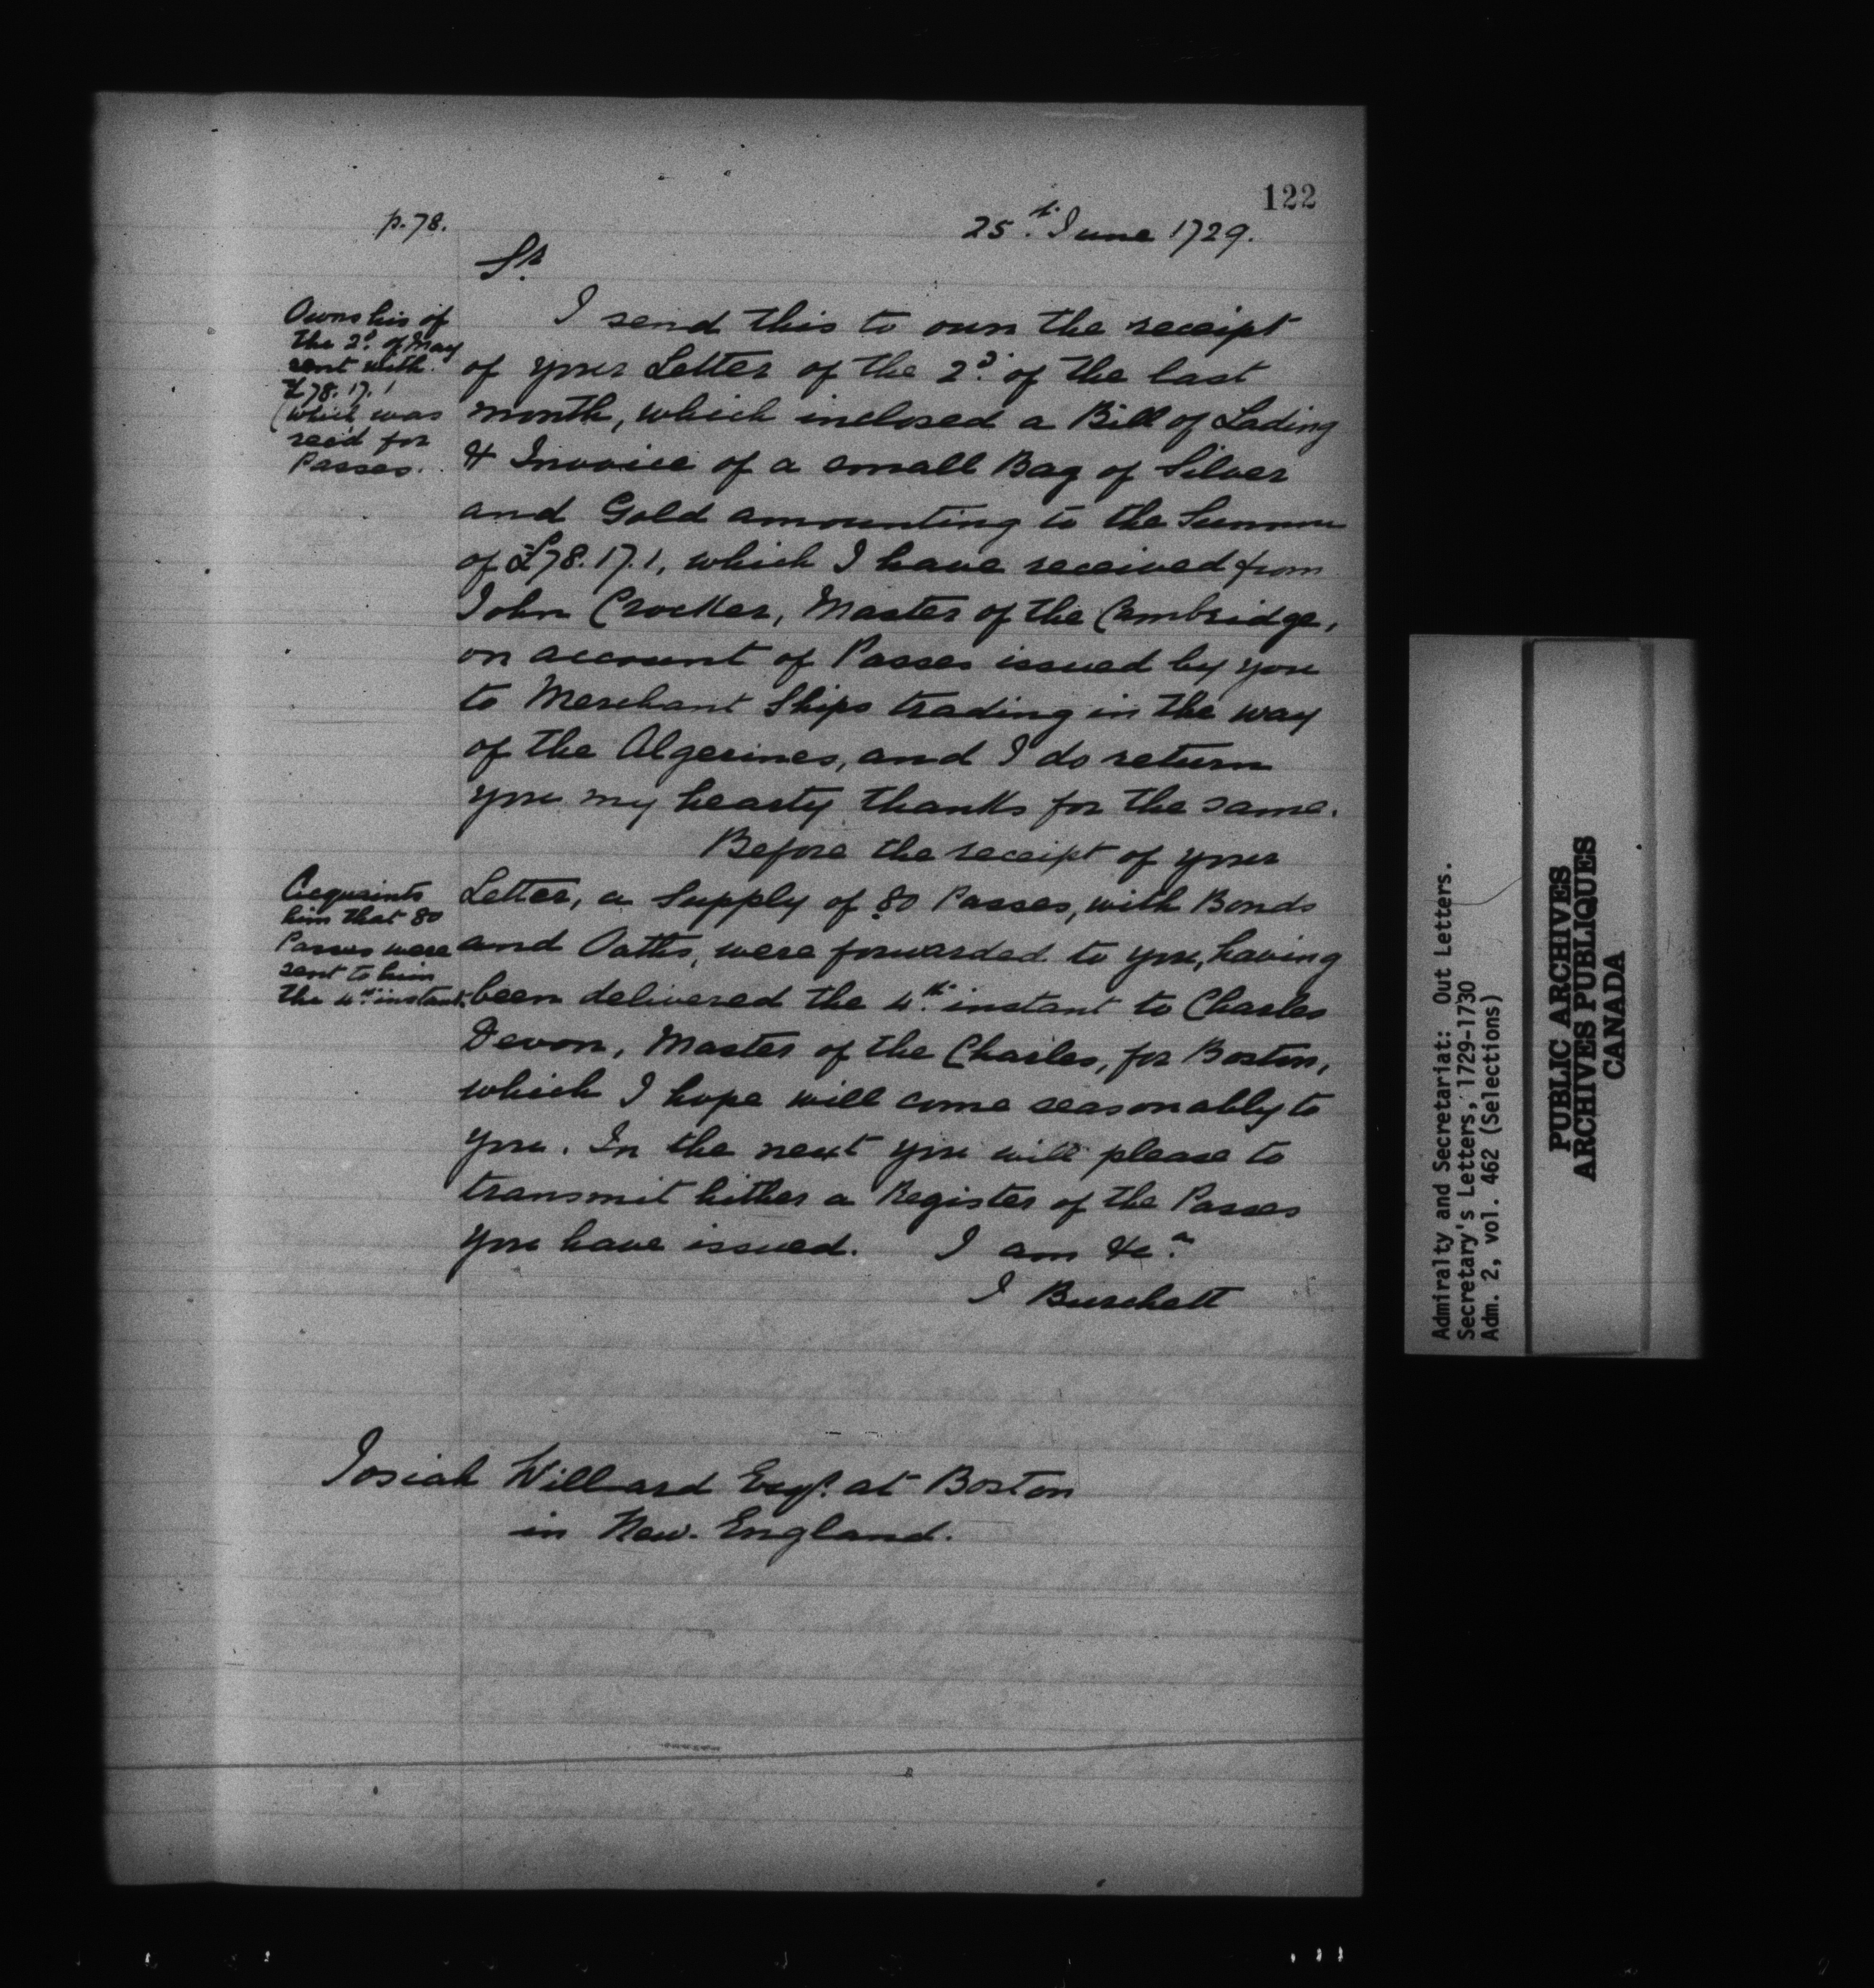 122
p. 78.
25th. June 1729.
Sr.
Owns his of
the 2d. of May
sent with
£78. 17. 1
(which was
rec'd for
Passes.
I send this to own the receipt
of your Letter of the 2d. of the last
month, which inclosed a Bill of Lading
& Invoice of a small Bag of Silver
and Gold amounting to the Summe
of £78. 17. 1, which I have received from
John Crocker, Master of the Cambridge,
on account of Passes issued by you
to Merchant Ships trading in the way
of the Algerines, and I do return
you my hearty thanks for the same.
Before the receipt of your
Acquaints
him that 80
Passes were
sent to him
the 4th instant.
Letter, a Supply of 80 Passes, with Bonds
and Oaths, were forwarded to you, having
been delivered the 4th. instant to Charles
Devon, Master of the Charles, for Boston,
which I hope will come seasonably to
you. In the next you will please to
transmit hither a Register of the Passes
you have issued. I am &c.a
J Burchett
Josiah Willard Esqr. at Boston
in New-England.
Admiralty and Secretariat: Out Letters.
Secretary's Letters, 1729-1730
Adm. 2, vol. 462 (Selections)
PUBLIC ARCHIVES
ARCHIVES PUBLIQUES
CANADA